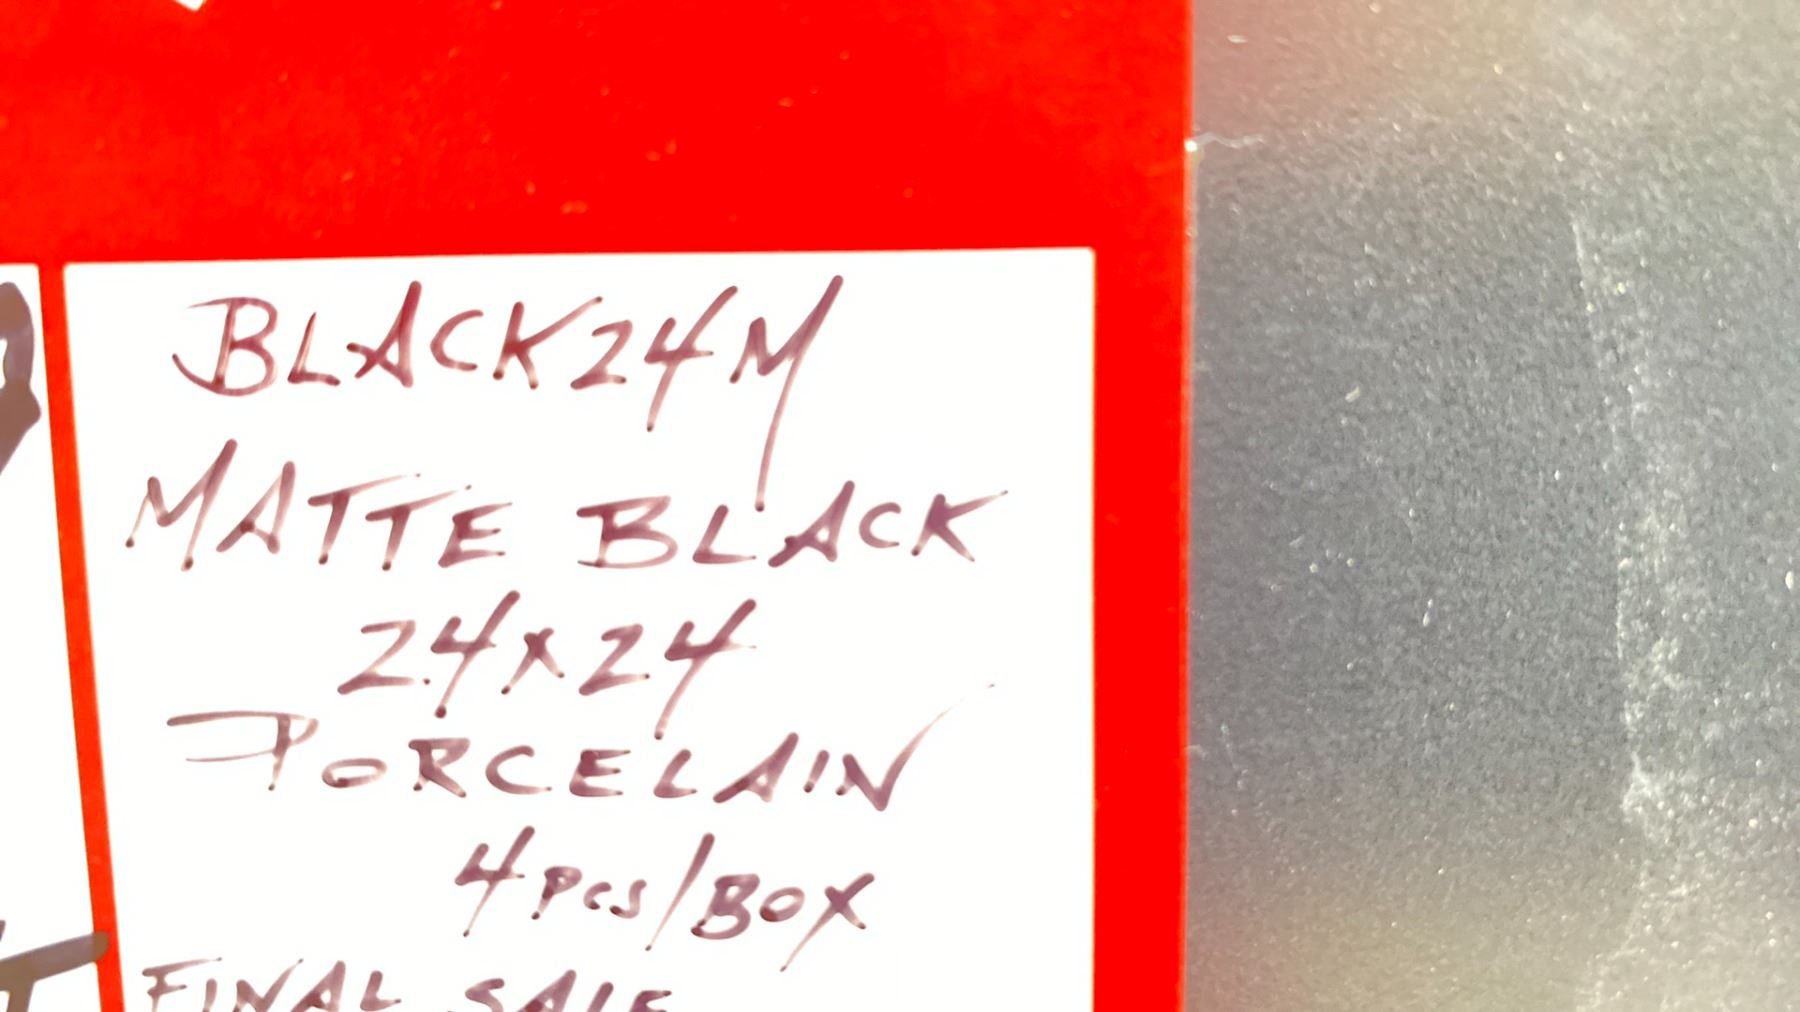 BLACK24M
MATTE BLACK
24x24
PORCELAIN
4 PCS/BOX
FINAL SALE